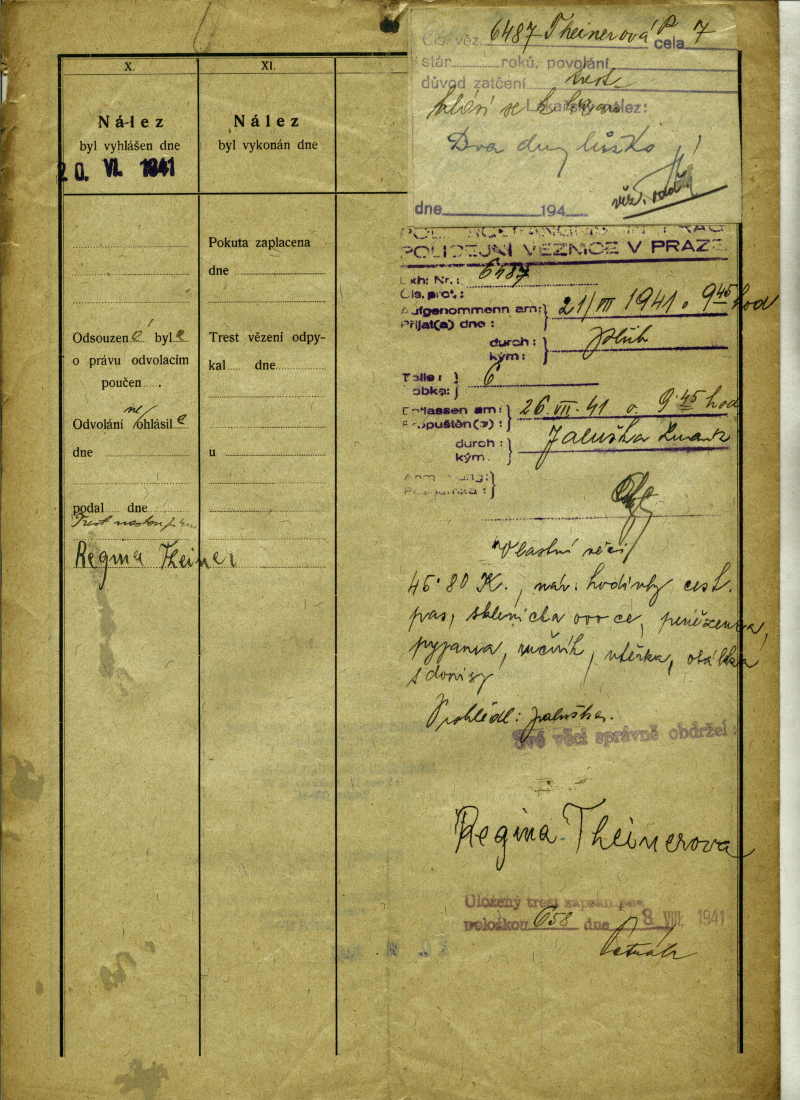 X.
Nález
byl vyhlášen dne
20. VI. 1941
Odsouzen á byl a
o právu odvolacím
poučen
Odvolání ne ohlásil a
dne
podal dne
Trest
Regina Theiner
XI.
Nález
byl vykonán dne
Pokuta zaplacena
dne
Trest vězení odpy-
kal dne
u
Čís. věz. 6487 Theinerová R cela 7
stár roků, povolání
důvod zatčení trest
hlásí se k Lékařský nález:
Dva dny lůžko
dne 194
POLICEJNÍ VĚZNICE V PRAZE
Exh: Nr.: 6487
Čís. prot.:
Aufgenommenn am: 21/VII 1941 o 9 45 hod
Přijat(a) dne:
durch:
kým:
Zelle: 6
Robka:
Entlassen am: 26. VII. 41 o 9 45 hod
Propuštěn(a):
durch: Jaluška
kým.
Anmerkung:
Poznámka:
Vlastní věci
45·80 K., nár. hodinky, cest.
pas, sklenicka ovoce, peněženka,
pyjama, ručník, utěrka, obálka
s dopisy
Prohlédl: Jaluška.
Své věci správně obdržel:
Regina Theinerova
Uložený trest zapsán pod
položkou 658 dne 8 VIII. 1941